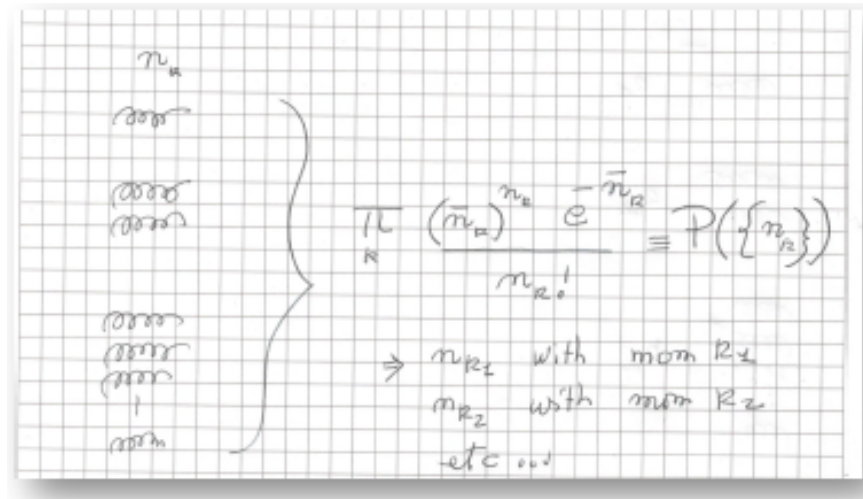 n_k
∏_k (n̄_k)^{n_k} e^{-n̄_k} / n_k! ≡ P({n_k})
⇒ n_{k1} with mom k1
n_{k2} with mom k2
etc...